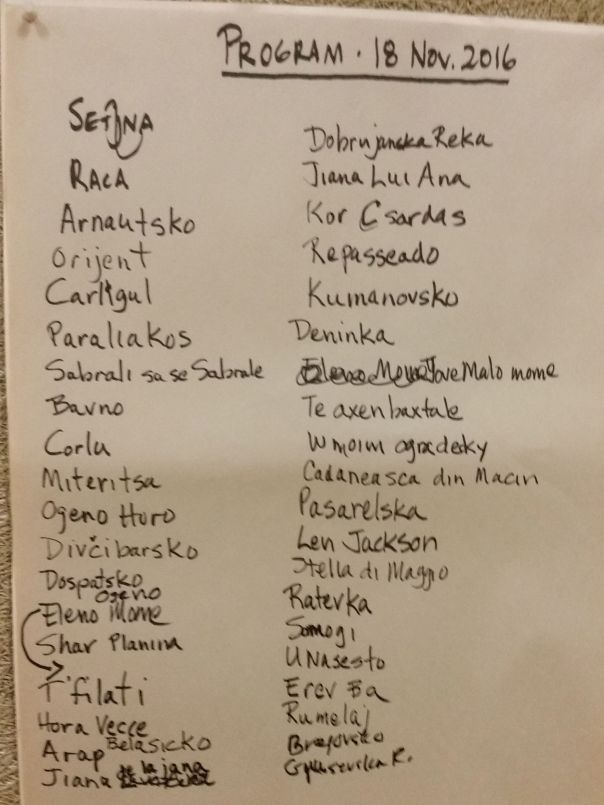 PROGRAM · 18 NOV. 2016
SETNA
RACA
Arnautsko
Orijent
Carligul
Paraliakos
Sabrali sa se Sabrale
Bavno
Corlu
Miteritsa
Ogeno Horo
Divčibarsko
Dospatsko
Ogeno
Eleno Mome
Shar Planina
T'filati
Hora Vecce
Belasicko
Arap
Jiana de la jana
Dobrujanska Reka
Jiana Lui Ana
Kor Csardas
Repasseado
Kumanovsko
Deninka
Eleno Mome Jove Malo mome
Te axen baxtale
W moim ogradecky
Cadaneasca din Macin
Pasarelska
Len Jackson
Stella di Maggio
Ratevka
Somogi
UNASESTO
Erev Ba
Rumelaj